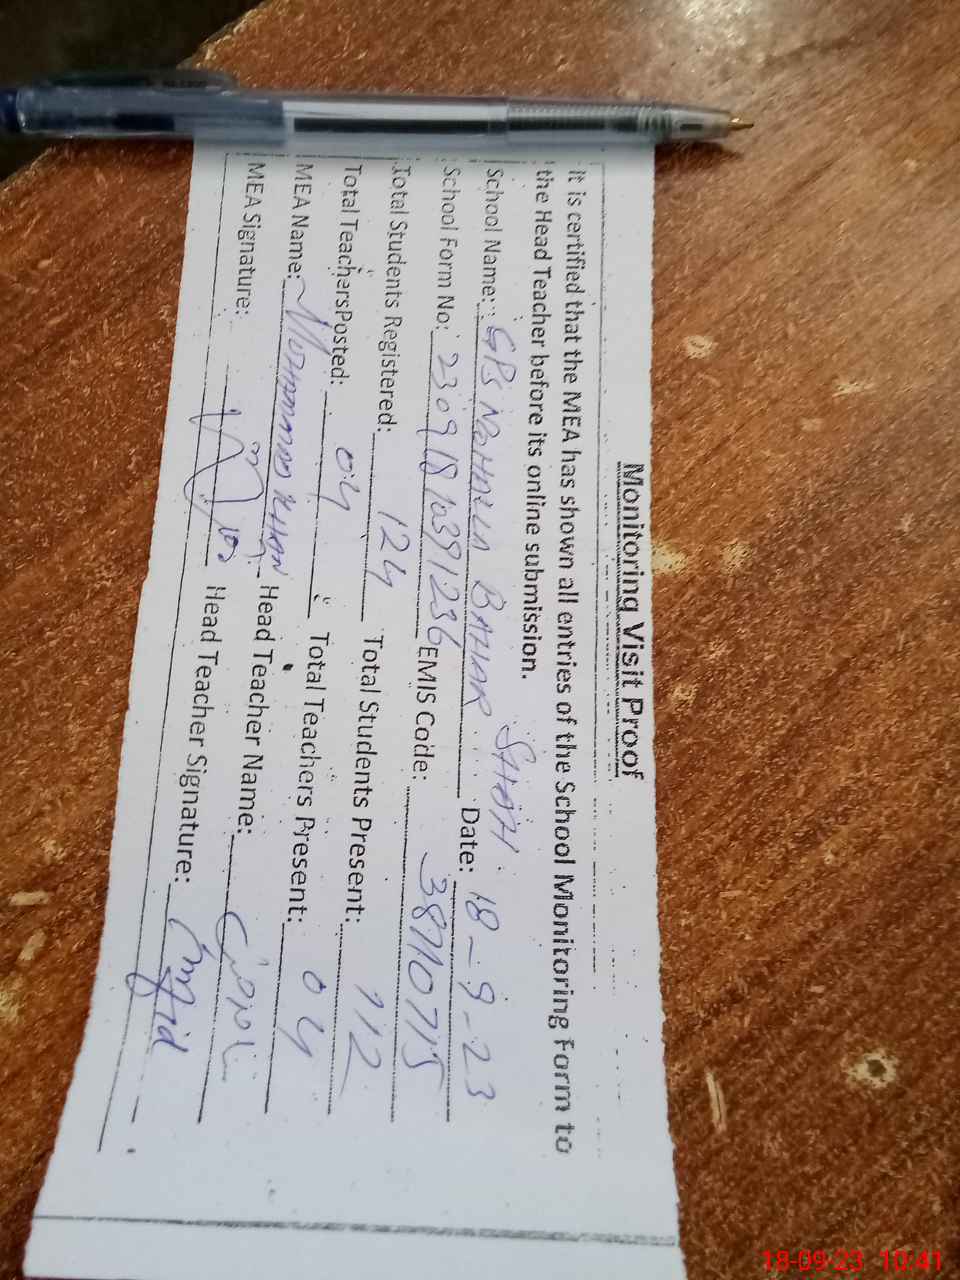 Monitoring Visit Proof
It is certified that the MEA has shown all entries of the School Monitoring Form to
the Head Teacher before its online submission.
School Name: GPS BAHAR SHAH Date: 18-9-23
School Form No: EMIS Code: 38710715
Total Students Registered: 124 Total Students Present: 112
Total Teachers Posted: 04 Total Teachers Present: 04
MEA Name: MUHAMMAD KHAN Head Teacher Name:
MEA Signature: Head Teacher Signature:
18-09-23 10:41